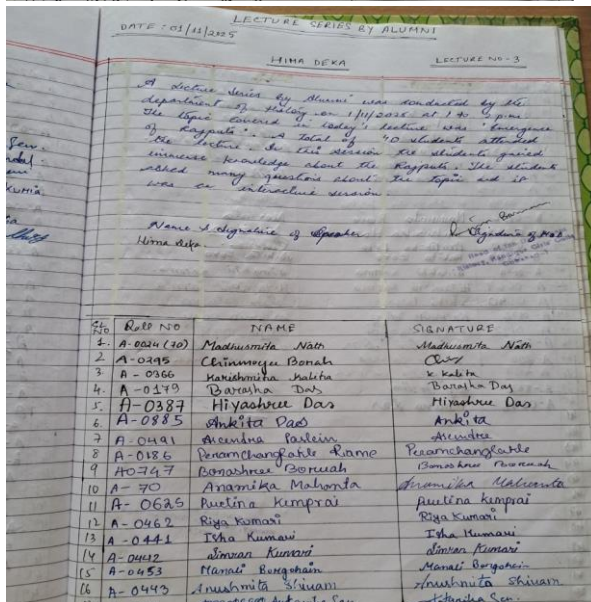 LECTURE SERIES BY ALUMNI
DATE : 01/11/2025
HIMA DEKA
LECTURE NO - 3
A lecture series by Alumni was conducted by the
department of History on 1/11/2025 at 1 to 2 p.m.
The topic covered in today's lecture was "Emergence
of Rajputs". A total of 40 students attended
the lecture. In this session the students gained
immense knowledge about the Rajputs. The students
asked many questions about the topic and it
was an interactive session.
Name & Signature of Speaker
Signature of HOD
Hima Deka
Sl. No Roll NO NAME SIGNATURE
1. A-0024 (70) Madhusmita Nath Madhusmita Nath
2 A-0295 Chinmoyee Borah
3 A-0366 Karishmita Kalita K. Kalita
4. A-0179 Barasha Das Barasha Das
5. A-0387 Hiyashree Das Hiyashree Das
6. A-0885 Ankita Das Ankita
7 A-0491
8 A-0186 Peramchangbahle
9 A0747 Bonashree Boruah Bonashree Boruah
10 A-70 Anamika Mahonta Anamika Mahonta
11 A-0625 Ruetina Kemprai Ruetina Kemprai
12 A-0462 Riya Kumari Riya Kumari
13 A-0441 Isha Kumari Isha Kumari
14 A-0442 Simran Kumari Simran Kumari
15 A-0453 Manali Borgohain Manali Borgohain
16 A-0443 Anushmita Shivam Anushmita Shivam